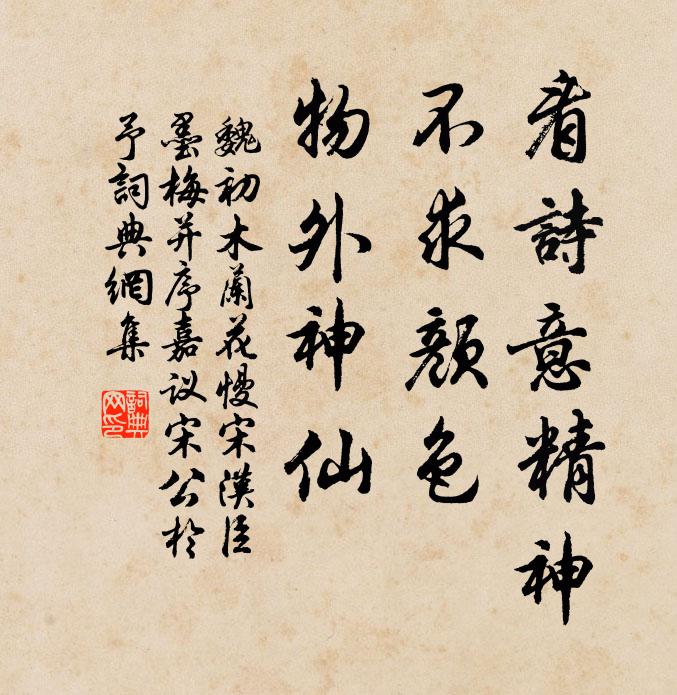 看詩意精神
不求顏色
物外神仙
魏初木蘭花慢宋漢臣
墨梅并序嘉议宋公於
予詞典網集
詞典
网印